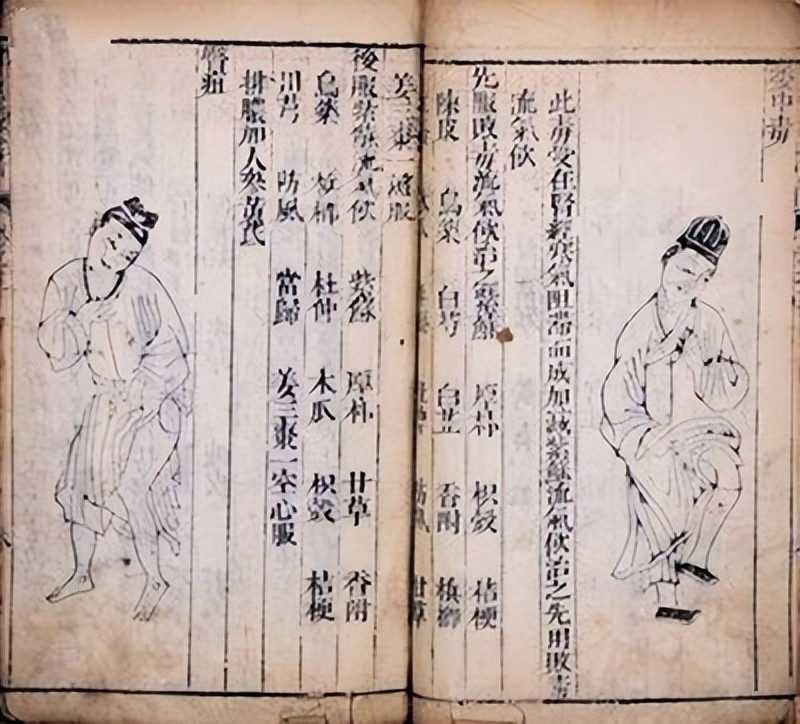 委中毒
此毒受在腎經寒氣阻滯而成加減紫蘇流氣飲治之先用敗毒
流氣飲
先服敗毒流氣飲治之 厚朴 枳殼 桔梗
陳皮 烏藥 白芍 白芷 香附 檳榔
甘草
姜三棗一 服
後服紫蘇流氣飲 紫蘇 厚朴 甘草 香附
烏藥 檳榔 杜仲 木瓜 枳殼 桔梗
川芎 防風 當歸 姜三棗一空心服
排膿加人參黃芪
腎疽